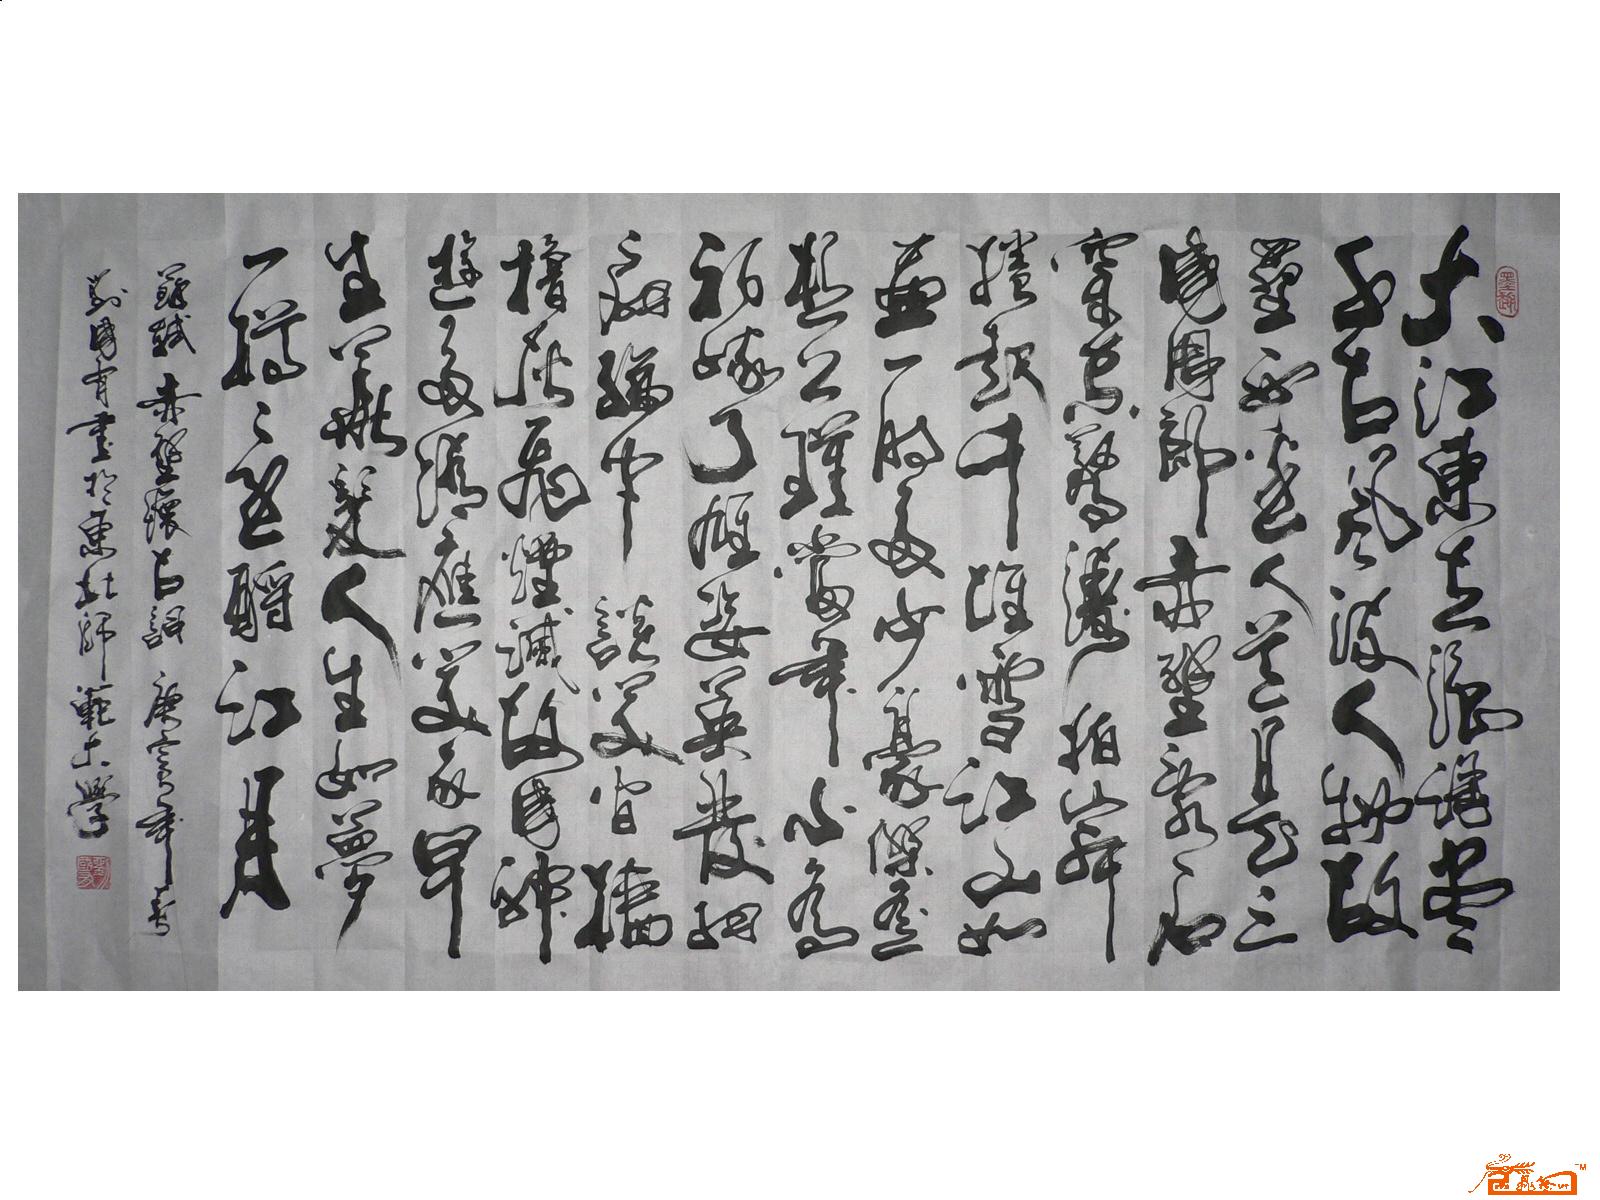 大江東去浪淘尽
千古風流人物故
壘西邊人道是三
國周郎赤壁亂石
穿空驚濤拍岸
捲起千堆雪江山如
畫一時多少豪傑遙
想公瑾當年小喬
初嫁了雄姿英發羽
扇綸巾談笑间檣
櫓灰飛煙滅故國神
遊多情應笑我早
生華髮人生如夢
一樽還酹江月
蘇軾赤壁懷古詞庚寅年春
劉國有書於東北師範大學